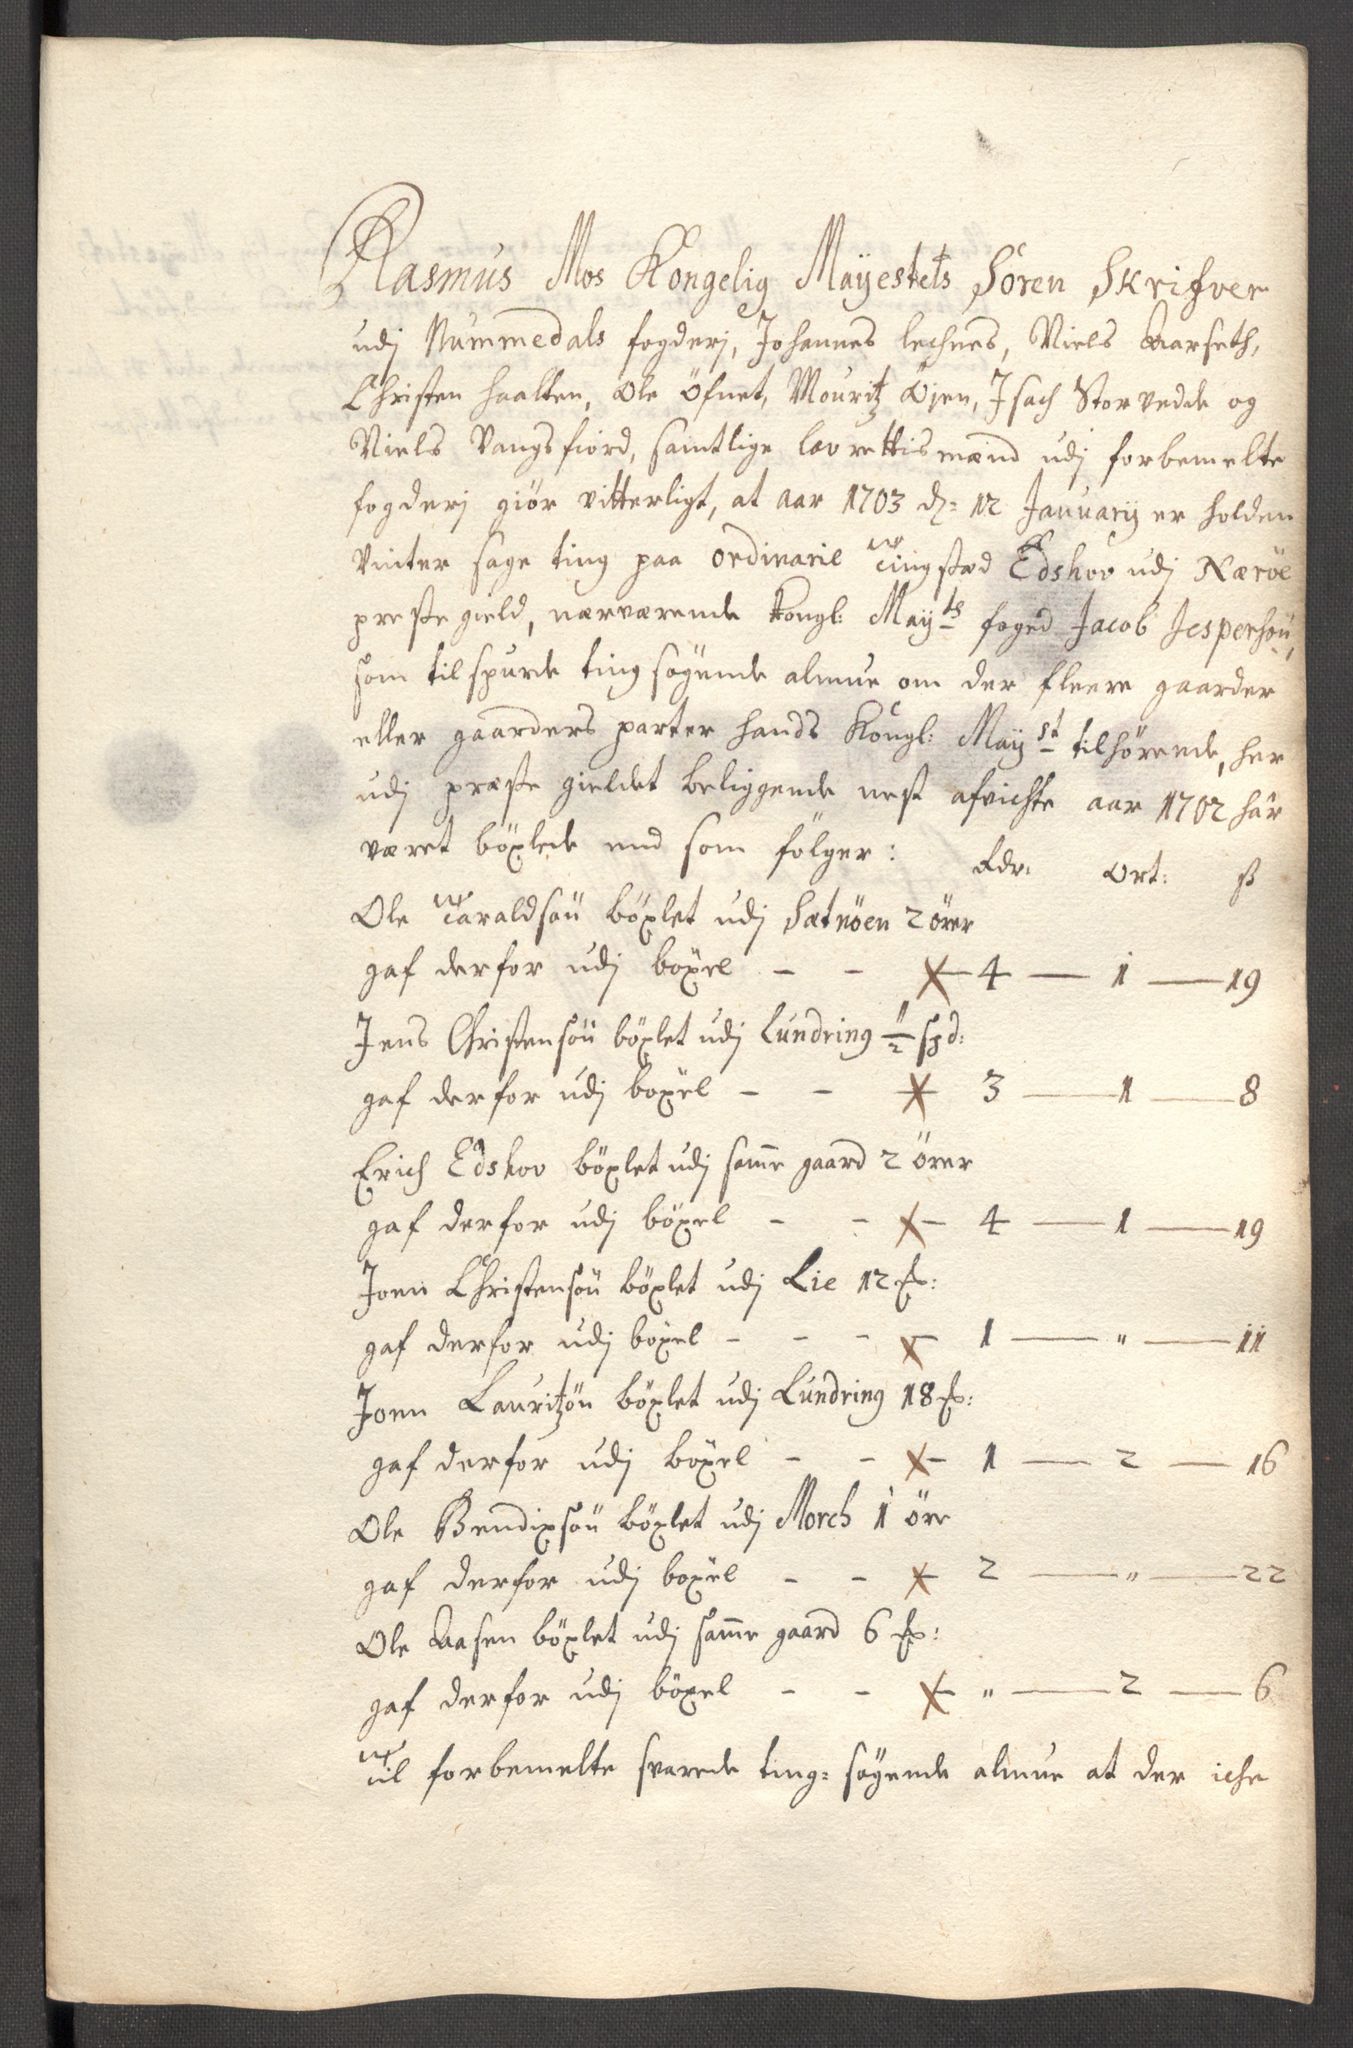 Rasmus Mos Kongelig Mayestets Sören Skrifver
udj Nummedals fogderj, Johannes lechnes, Niels Aarseth,
Christen haalten, Ole Öfnet, Mouritz Öjen, Isach Storvedde og
Niels Vangsfiord, samtlige lavrettismænd udj forbemelte
fogderj giör vitterligt, at aar 1703 d: 12 Januarij er holden
vinter sage ting paa ordinarie tingstæd Edshov udj Næröe
preste gield, nærværende kongl: Mayts foged Jacob Jespersön,
som tilspurde ting søgende almue om der fleere gaarder
eller gaarders parter hands Kongl: Mayst tilhörende, her
udj præste gieldet beliggende nest afvichte aar 1702 har
været böxlede end som fölger: Rdr: Ort: ß
Ole Taraldsön böxlet udj Sætnöen 2 örer
gaf derfor udj böxel - - 4 — 1 — 19
Jens Christensön böxlet udj Lundring 1/2 spd:
gaf derfor udj böxel - - 3 — 1 — 8
Erich Edshov böxlet udj samme gaard 2 örer
gaf derfor udj böxel - - 4 — 1 — 19
Joen Christensön böxlet udj Lie 12 mk:
gaf derfor udj böxel - - - 1 — " — 11
Joen Lauritzön böxlet udj Lundring 18 mk:
gaf derfor udj böxel - - 1 — 2 — 16
Ole Bendixsön böxlet udj Morch 1 öre
gaf derfor udj böxel - - 2 — " — 22
Ole Aasen böxlet udj samme gaard 6 mk:
gaf derfor udj böxel - - " — 2 — 6
Til forbemelte svarede ting: søgende almue at der iche